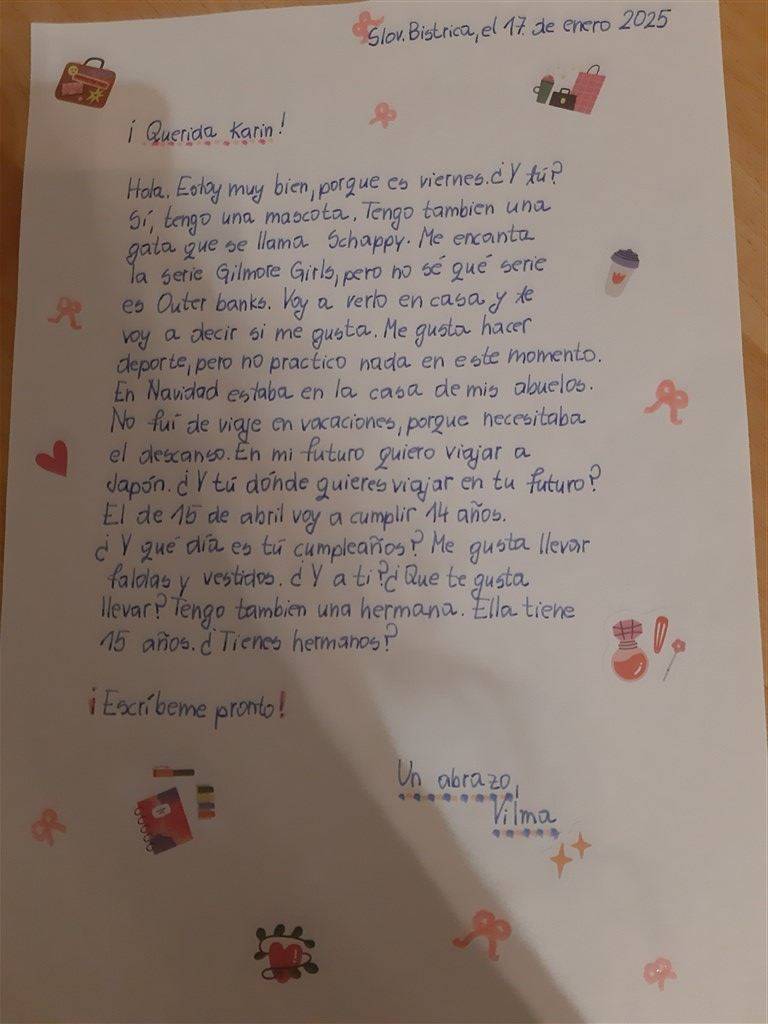 Slov. Bistrica, el 17. de enero 2025
¡ Querida Karin!
Hola. Estoy muy bien, porque es viernes. ¿Y tú?
Sí, tengo una mascota. Tengo tambien una
gata que se llama Schappy. Me encanta
la serie Gilmore Girls, pero no sé qué serie
es Outer banks. Voy a verlo en casa y te
voy a decir si me gusta. Me gusta hacer
deporte, pero no practico nada en este momento.
En Navidad estaba en la casa de mis abuelos.
No fuí de viaje en vacaciones, porque necesitaba
el descanso. En mi futuro quiero viajar a
Japón. ¿Y tú dónde quieres viajar en tu futuro?
El de 15 de abril voy a cumplir 14 años.
¿Y qué día es tú cumpleaños? Me gusta llevar
faldas y vestidos. ¿Y a ti? ¿Que te gusta
llevar? Tengo tambien una hermana. Ella tiene
15 años. ¿Tienes hermanos?
¡Escríbeme pronto!
Un abrazo,
Vilma